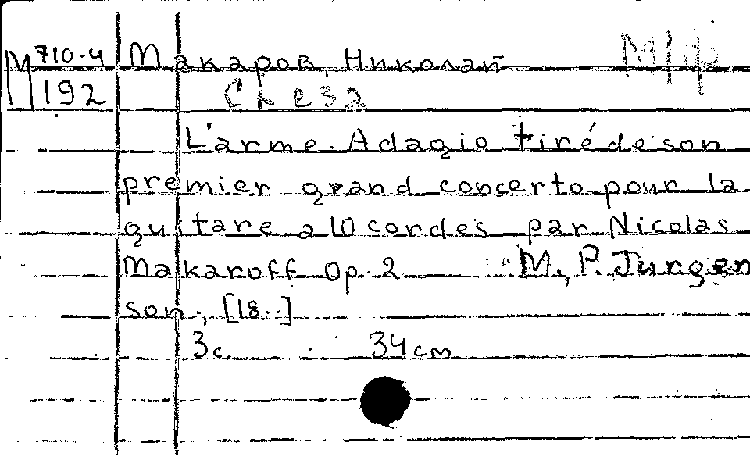 М 710-4 Макаров, Николай М/ф
192 Слеза
L'arme. Adagio tiré de son
premier grand conserto pour la
guitare a 10 cordes par Nicolas
Makaroff Op. 2 M., P. Jurgen
son, [18..]
3с. 34 cm